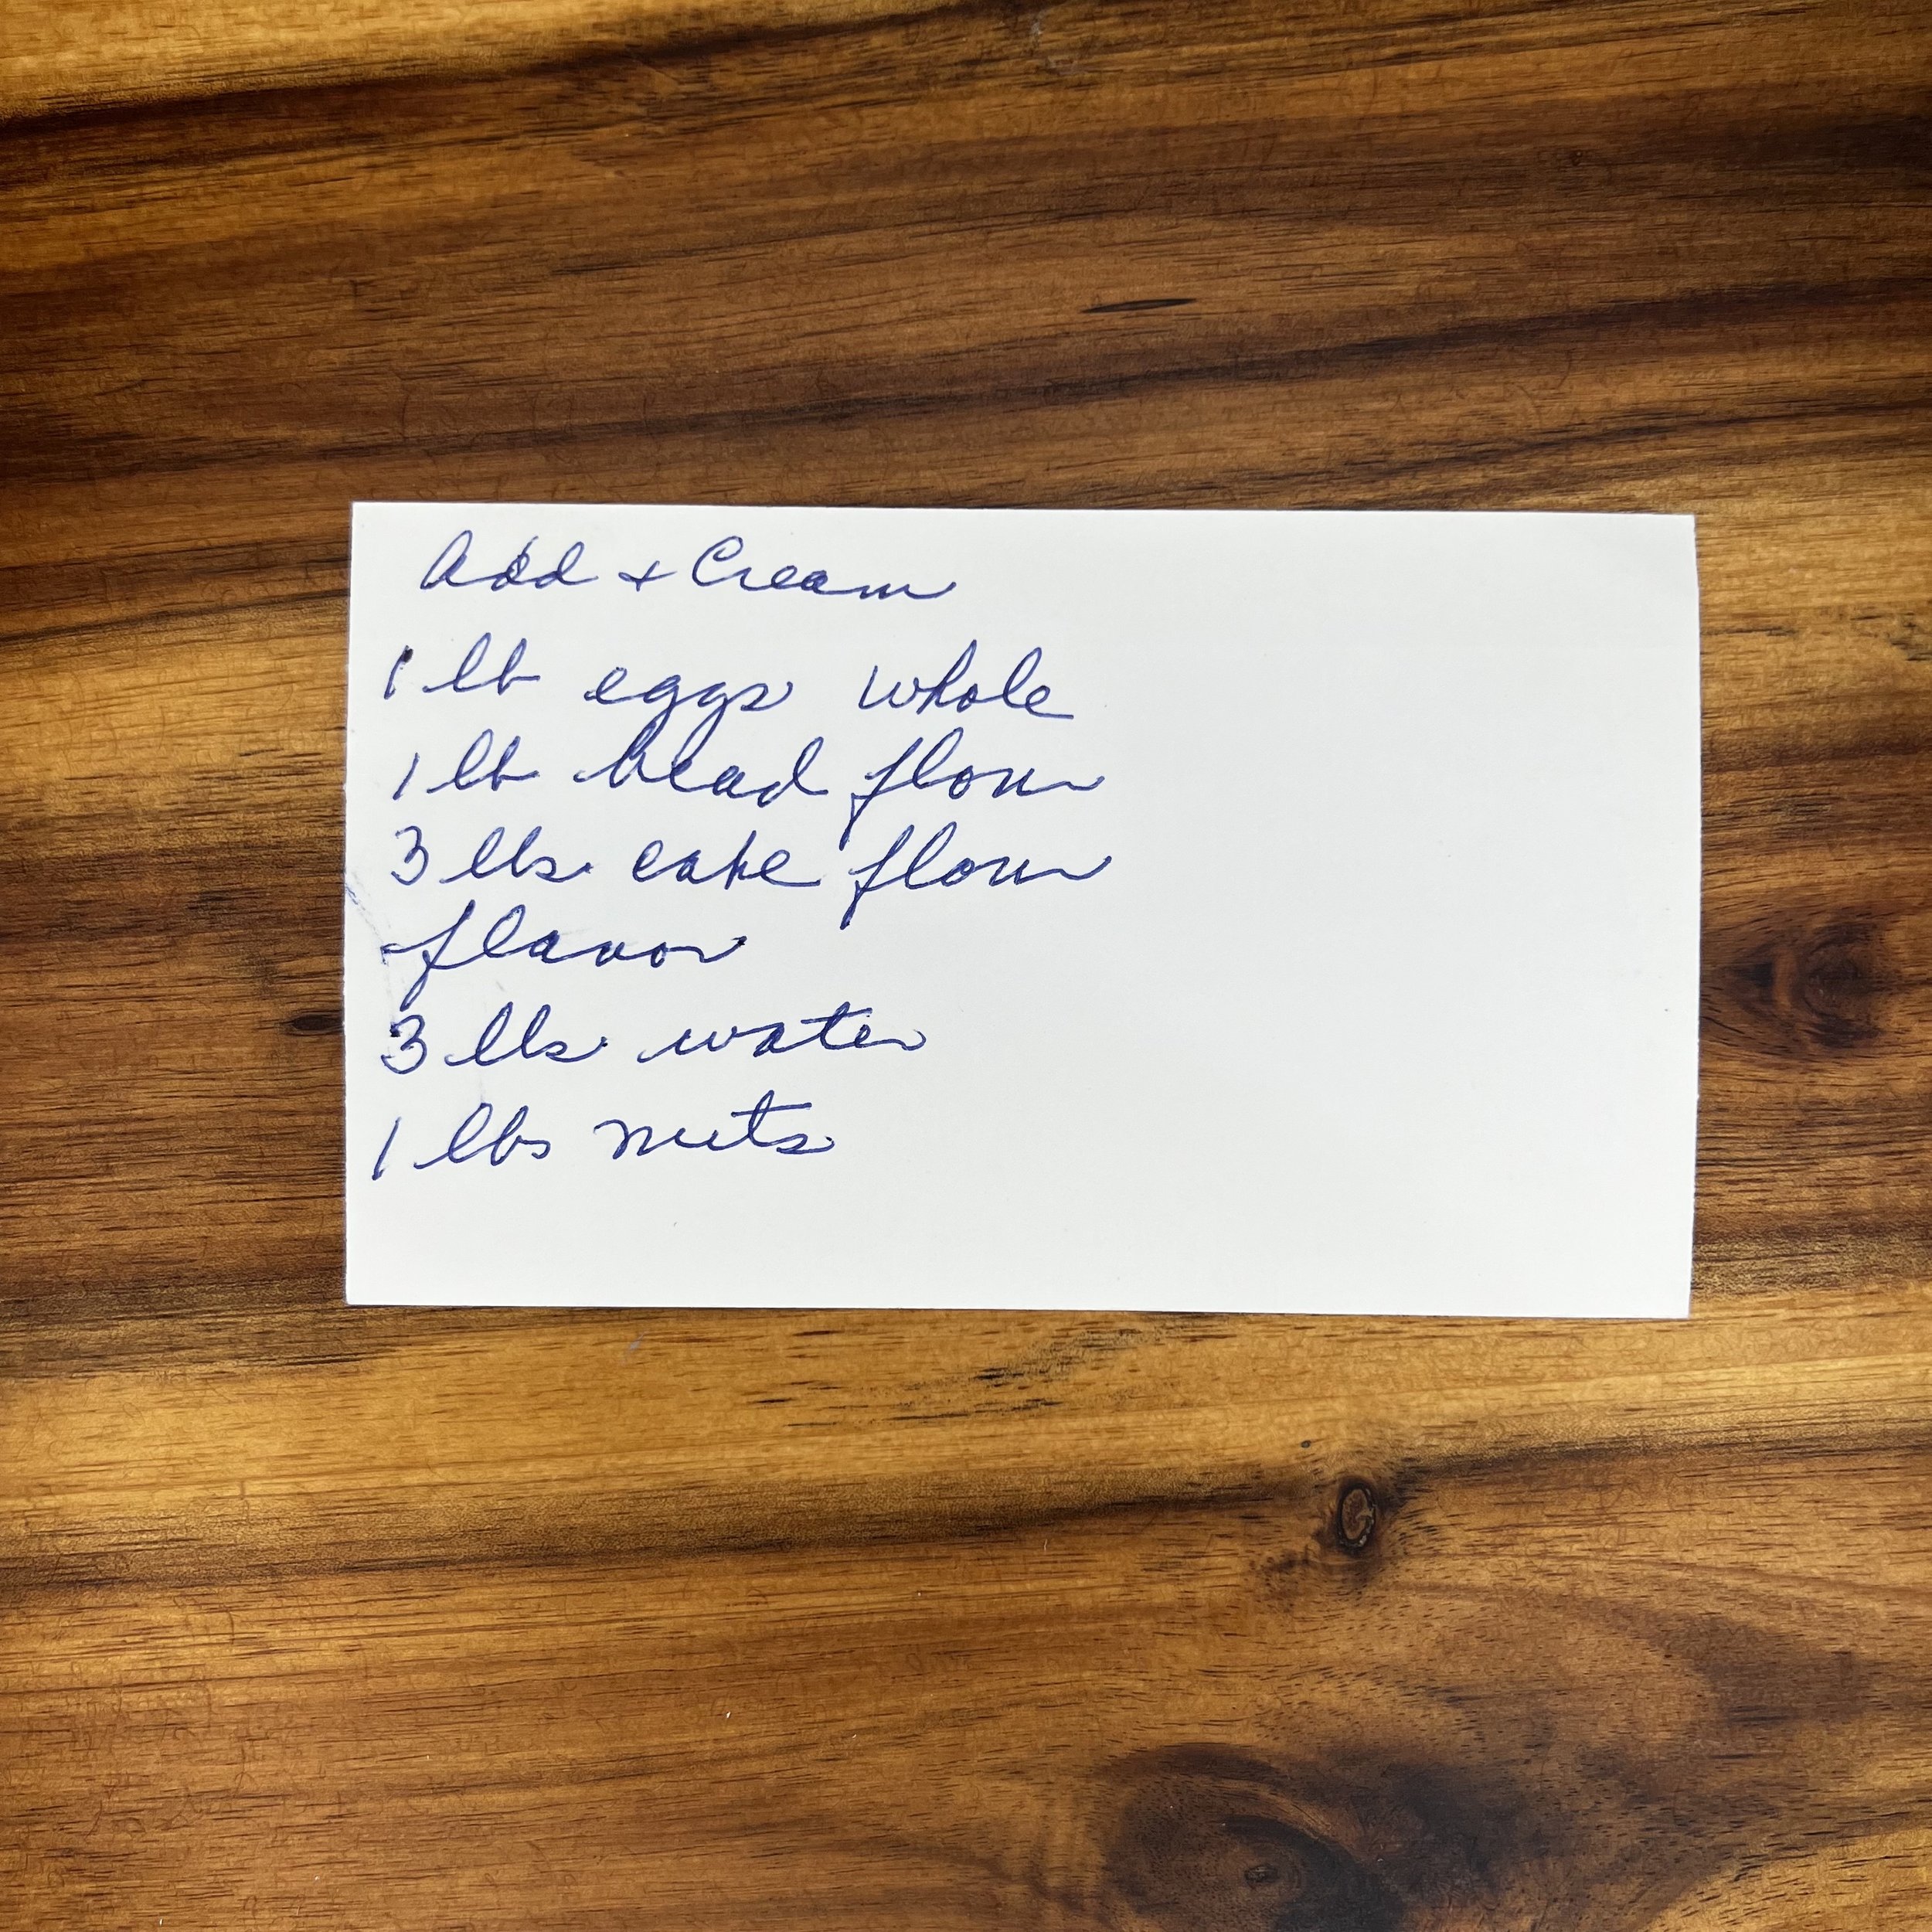 Add + Cream
1 lb eggs whole
1 lb bread flour
3 lbs. cake flour
flavor
3 lbs. water
1 lbs nuts